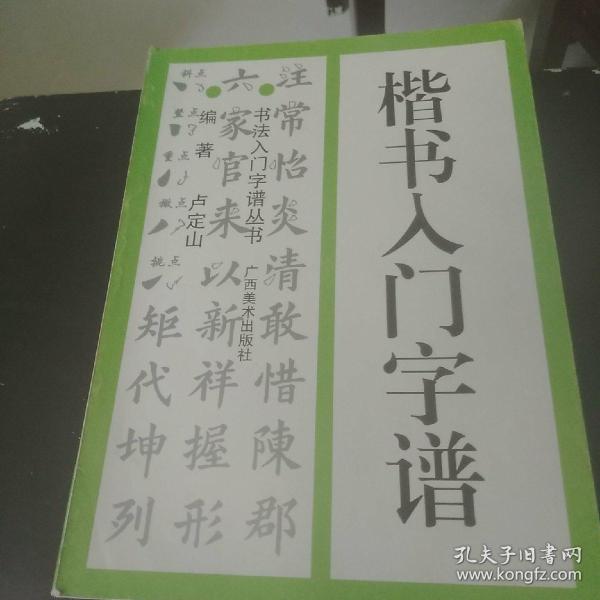 楷书入门字谱
书法入门字谱丛书
广西美术出版社
编著
卢定山
注常怡炎清敢惜陳郡
六家官来以新祥握形
斜点
竖点
重点
撇点
挑点
矩代坤列
孔夫子旧书网
www.kongfz.com